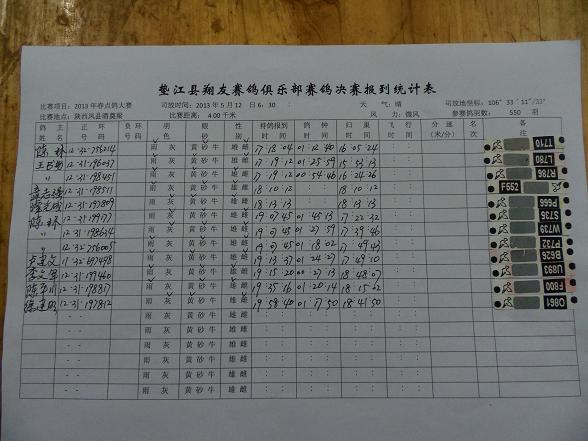 垫江县翔友赛鸽俱乐部赛鸽决赛报到统计表
比赛项目：2013年春点鸽大赛 司放时间：2013年5月12日6：30 天气：晴 司放地坐标：106°33′11″/33°
比赛地点：陕西凤县酒奠梁 比赛距离：400千米 风力：微风 参赛鸽羽数：550羽
鸽主姓名 正环号码 负环号码 雨色 眼砂 性别 持鸽报到时间 鸽钟时间 归巢时间 飞行时间 分速(米/分) 名次 备注
陈林 12-32-756214 雨 灰 黄 砂 牛 雄 雌 17 18 04 01 12 40 16 05 24 T710
12-31-196037 雨 灰 黄 砂 牛 雄 雌 17 19 12 01 25 59 15 53 13 L780
〃 12-31-198451 雨 灰 黄 砂 牛 雄 雌 17 19 12 00 54 46 16 24 26 R786
12-31-198511 雨 灰 黄 砂 牛 雄 雌 18 10 12 18 10 12 F299
12-31-197809 雨 灰 黄 砂 牛 雄 雌 18 13 13 18 13 13 P666
陈林 12-31-199777 雨 灰 黄 砂 牛 雄 雌 19 07 45 01 45 13 17 22 32 S736
〃 12-31-198634 雨 灰 黄 砂 牛 雄 雌 19 07 45 01 27 59 17 39 46 W739
〃 12-32-756005 雨 灰 黄 砂 牛 雄 雌 19 07 45 01 18 02 17 49 43 P732
11-32-697498 雨 灰 黄 砂 牛 雄 雌 19 13 37 01 24 27 17 49 10 B626
李文军 12-31-199460 雨 灰 黄 砂 牛 雄 雌 19 15 20 00 27 13 18 48 07 U893
12-31-198817 雨 灰 黄 砂 牛 雄 雌 19 35 16 01 20 14 18 15 02 F800
12-31-197812 雨 灰 黄 砂 牛 雄 雌 19 58 40 01 17 50 18 41 50 D861
- - 雨 灰 黄 砂 牛 雄 雌
- - 雨 灰 黄 砂 牛 雄 雌
- - 雨 灰 黄 砂 牛 雄 雌
- - 雨 灰 黄 砂 牛 雄 雌
- - 雨 灰 黄 砂 牛 雄 雌
- - 雨 灰 黄 砂 牛 雄 雌